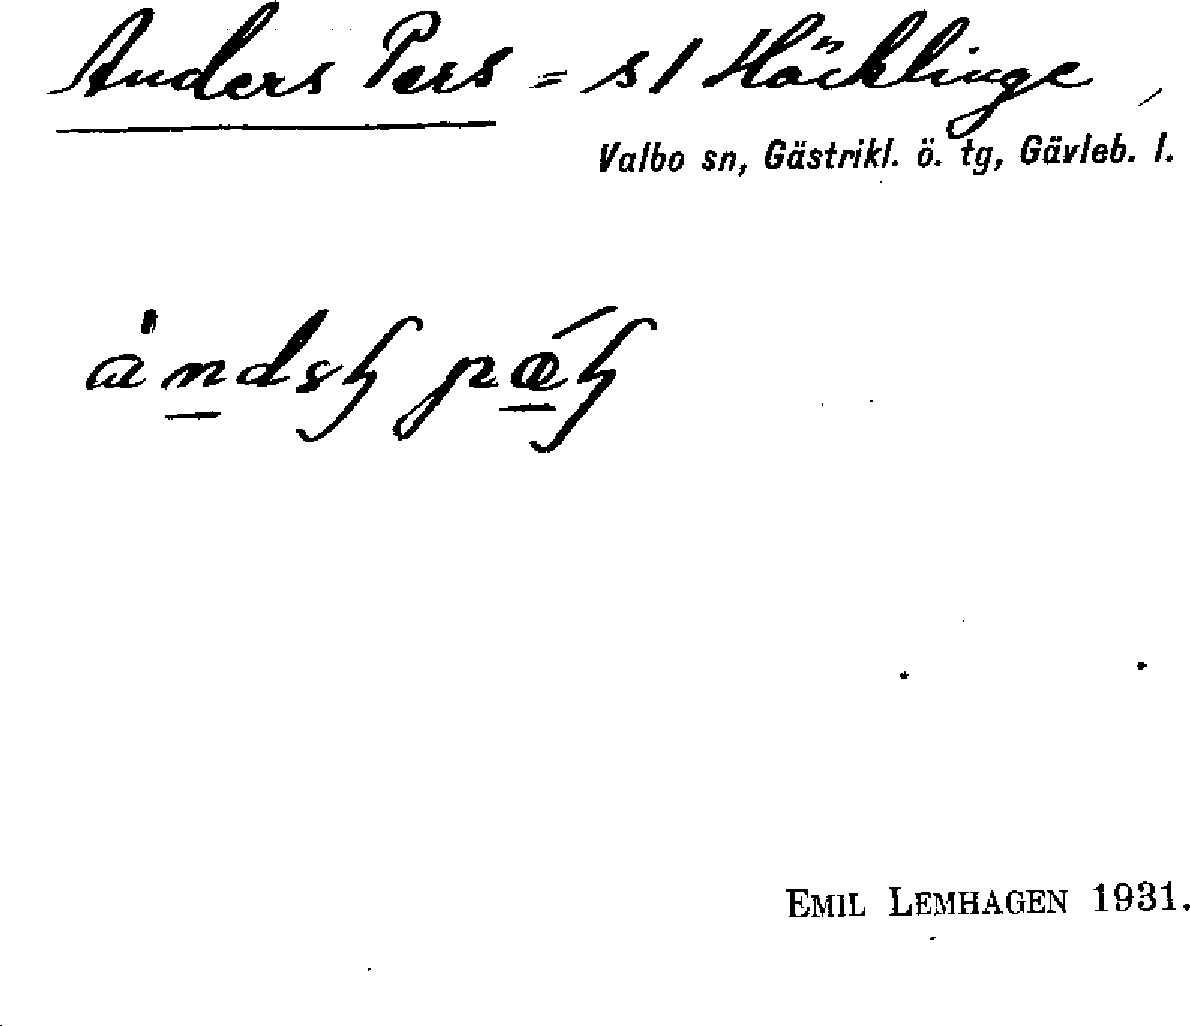 Anders Pers = s/ Häcklinge,
Valbo sn, Gästrikl. ö. tg, Gävleb. l.
EMIL LEMHAGEN 1931.